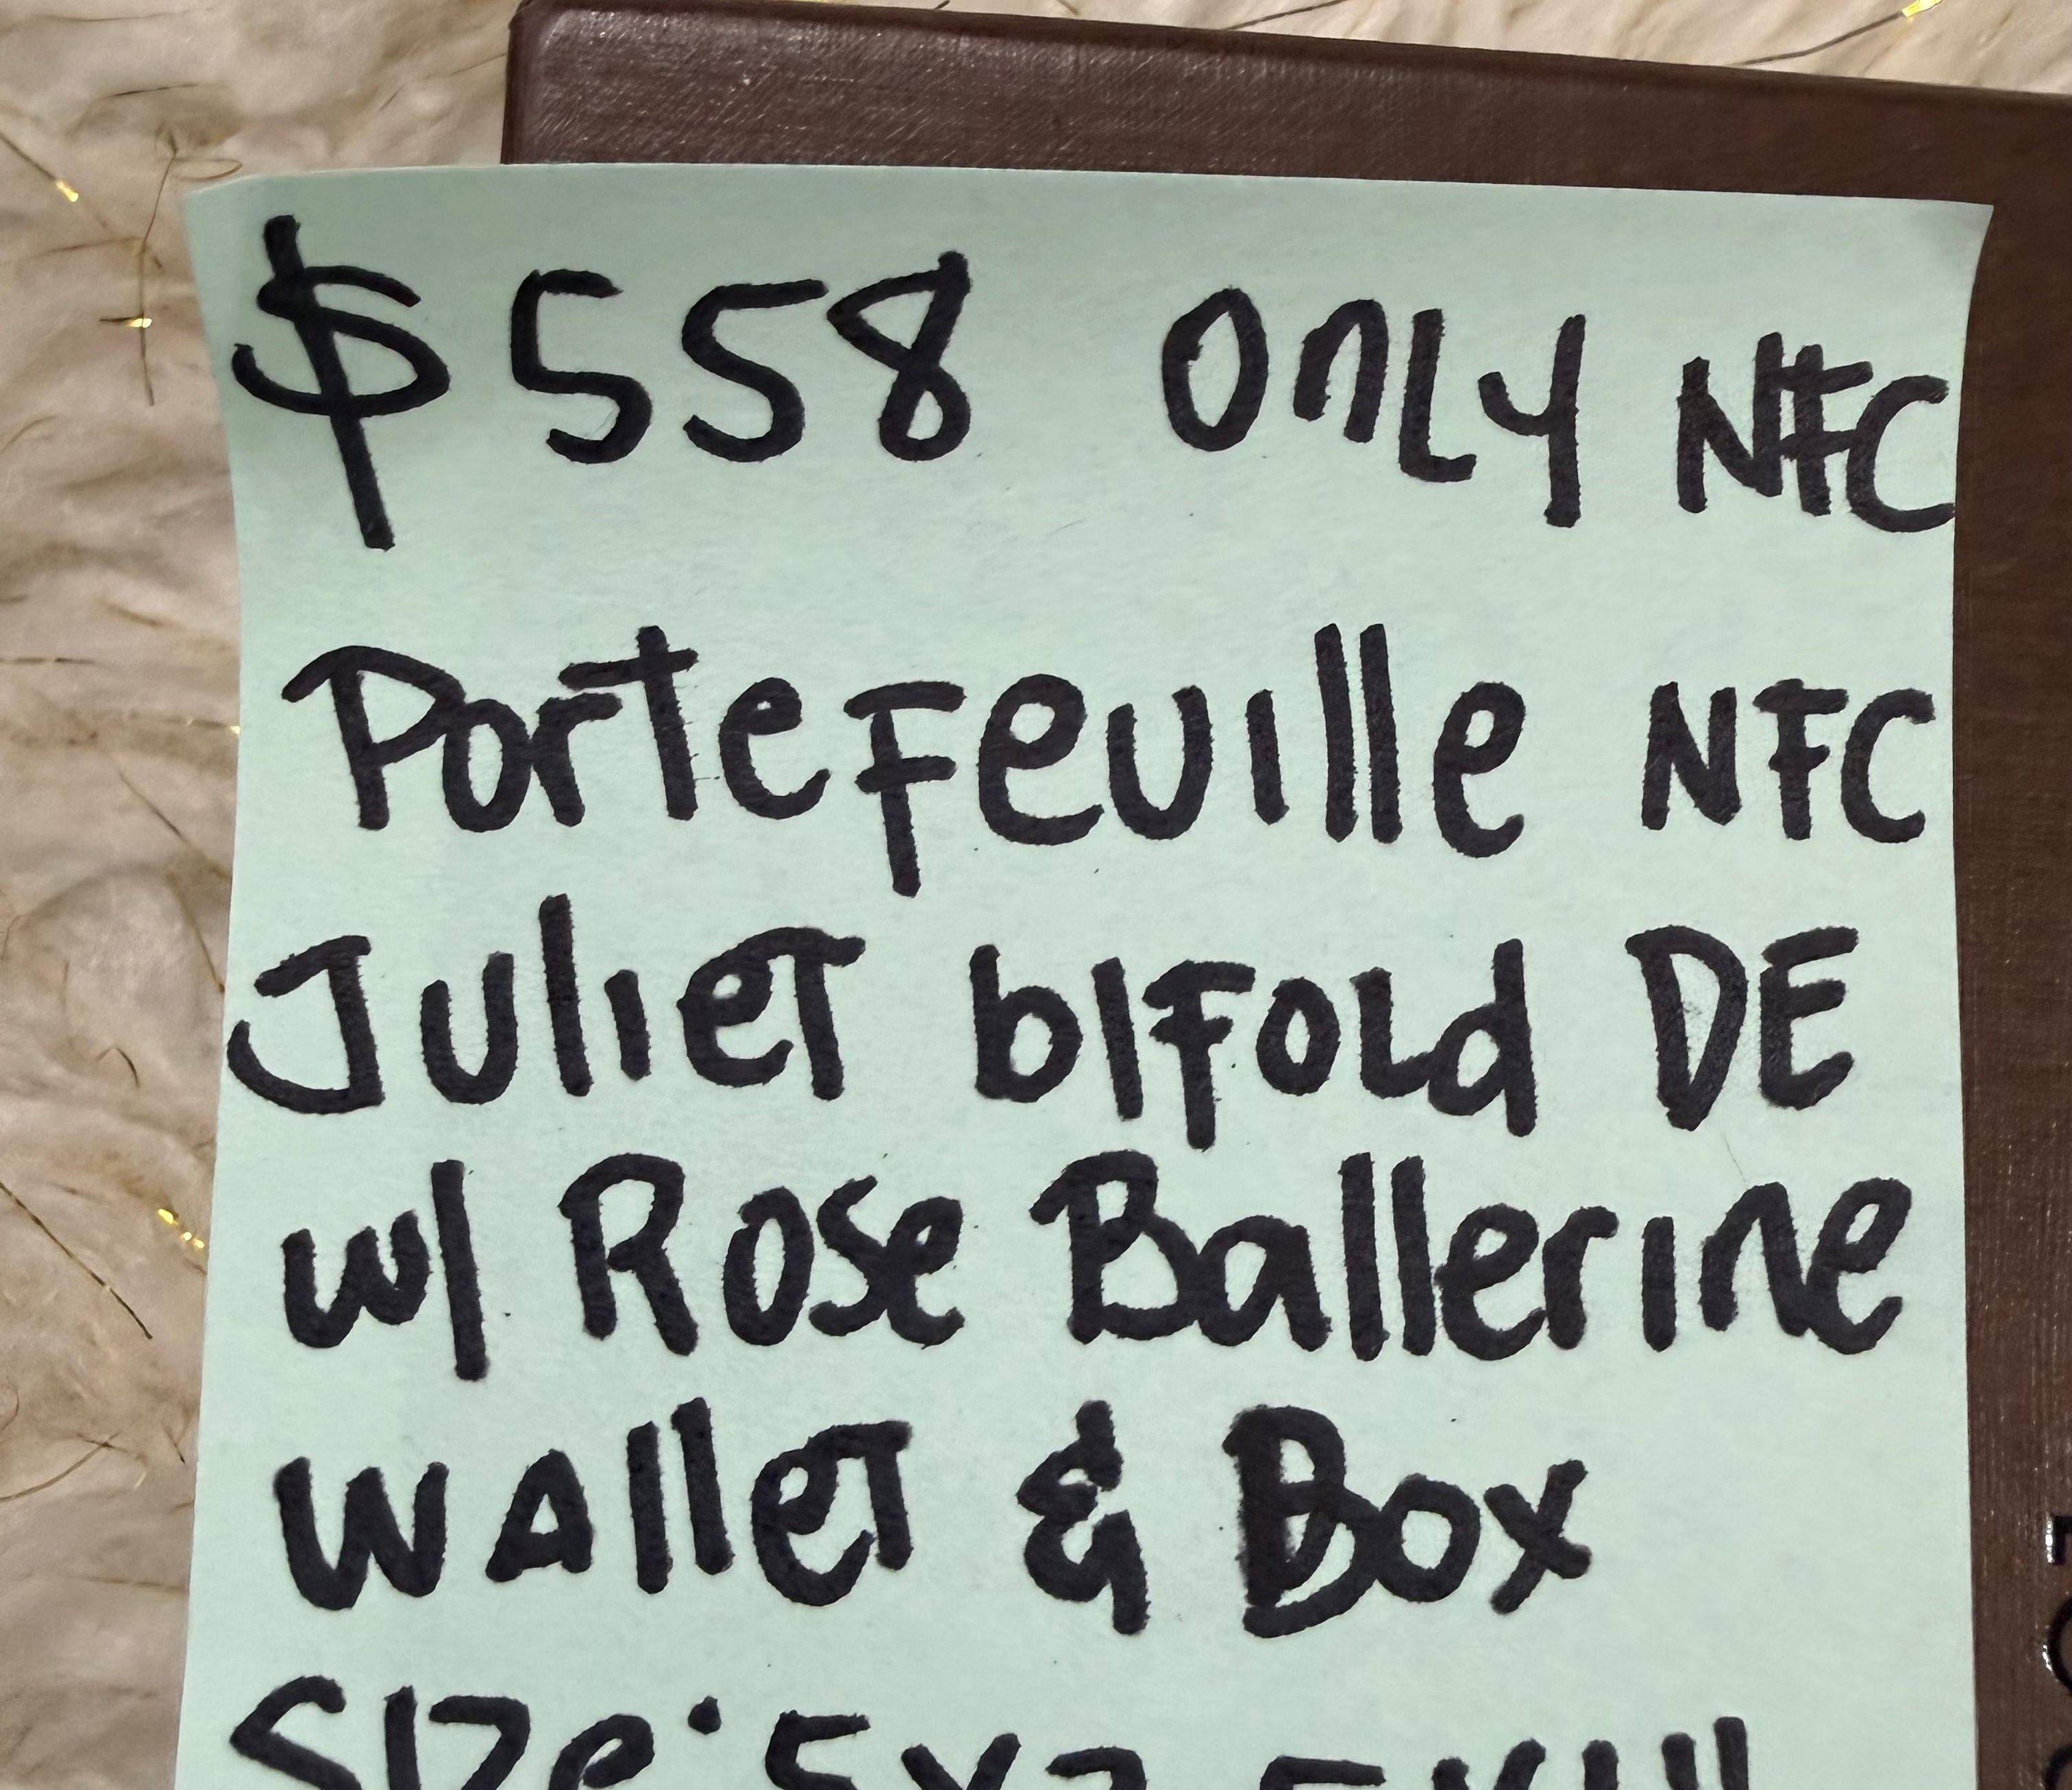 $558 Only NFC
Portefeuille NFC
Juliet bifold DE
w/ Rose Ballerine
Wallet & Box
Size: